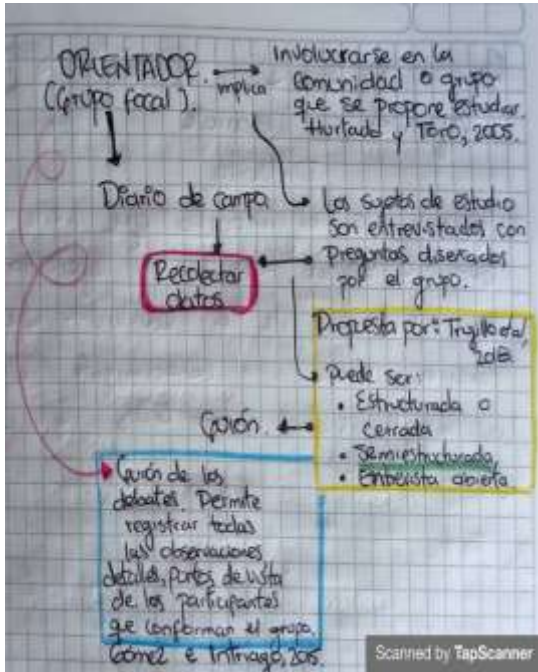 ORIENTADOR.
(Grupo focal).
implica
Involucrarse en la
comunidad o grupo
que se propone estudiar.
Hurtado y Toro, 2005.
Diario de campo
Los sujetos de estudio
son entrevistados con
preguntas diseñadas
por el grupo.
Recolectar
datos
Propuesta por: Trujillo et al,
Puede ser:
• Estructurada o
cerrada
• Semiestructurada
• Entrevista abierta
Guión.
Guión de los
debates. Permite
registrar todas
las observaciones
detalles, puntos de vista
de los participantes
que conforman el grupo.
Gómez e Intriago,
Scanned by TapScanner